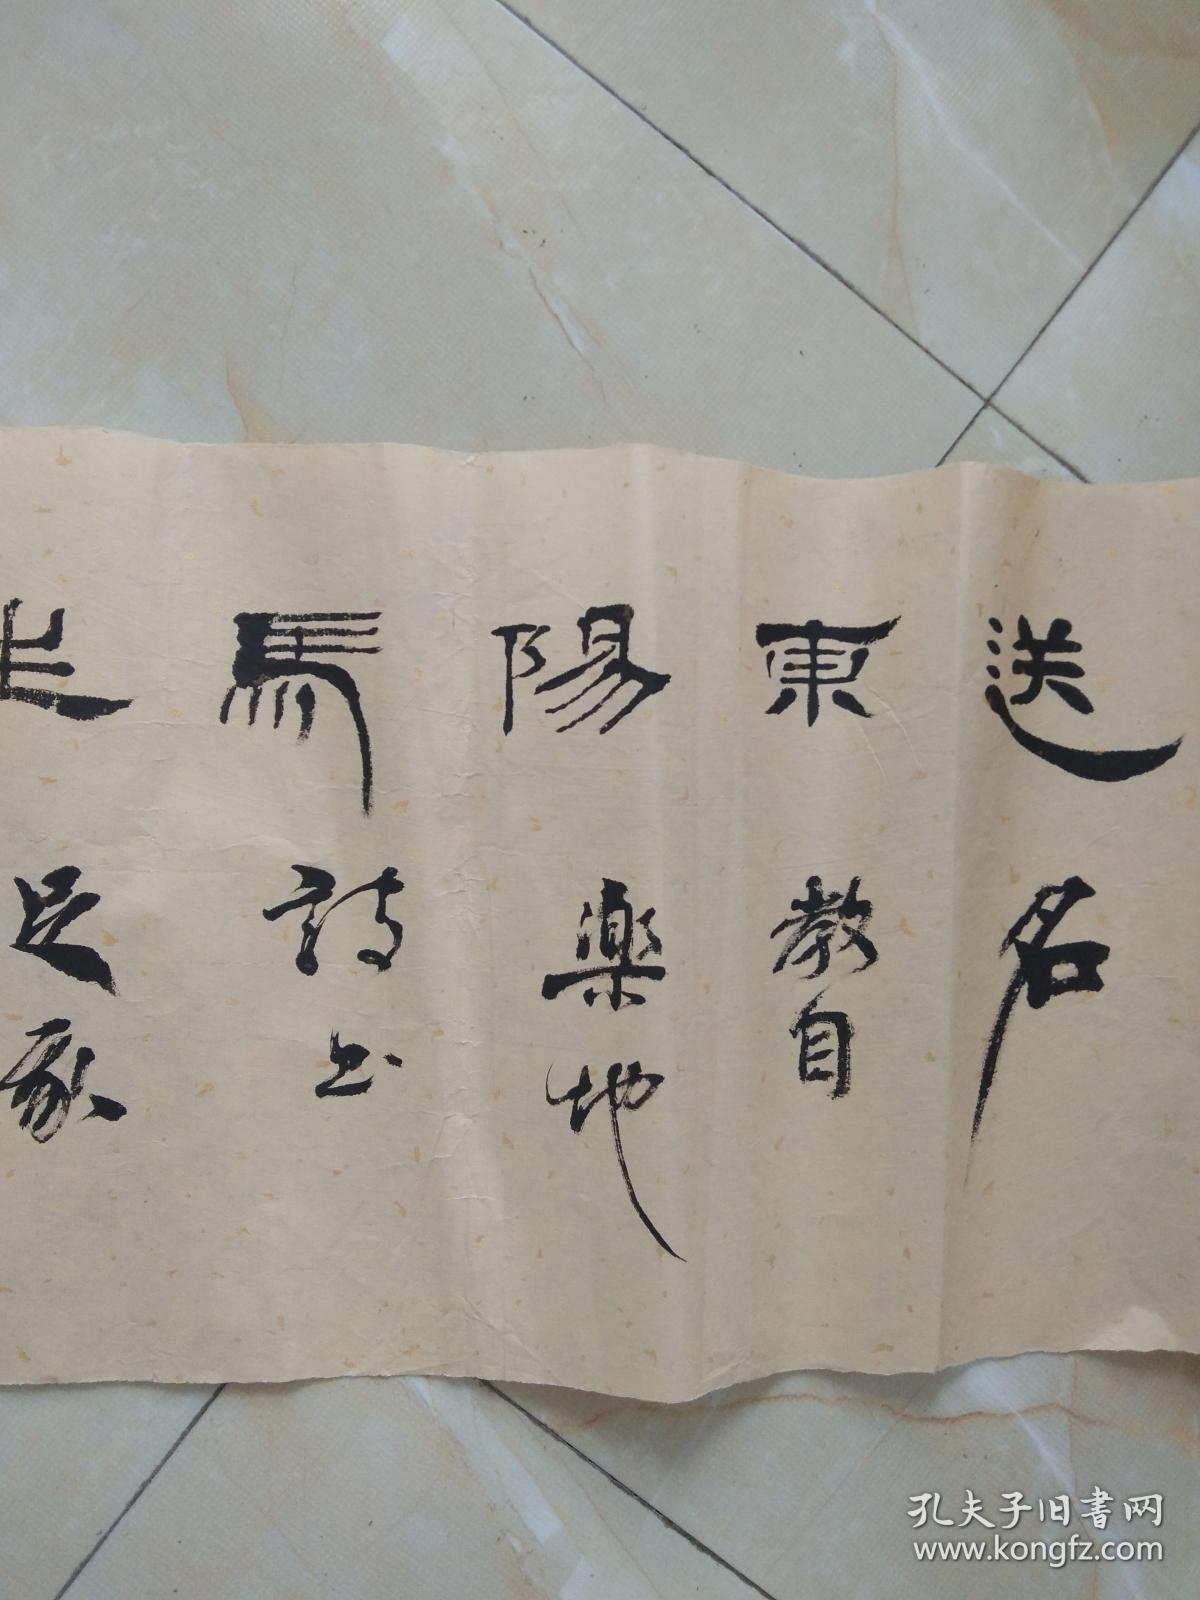 送名
東教自
陽樂地
馬詩书
走足家
孔夫子旧書网
www.kongfz.com